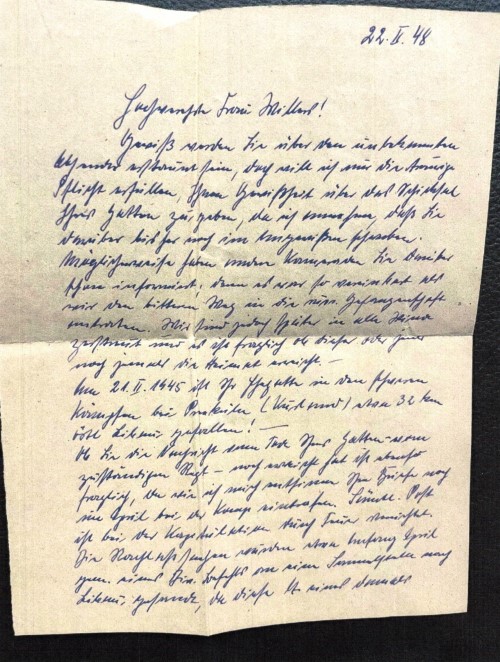 22.II.48
Hochverehrte Frau Willers!
Gewiß werden Sie über den unbekannten
Absender erstaunt sein, doch will ich nur die traurige
Pflicht erfüllen, Ihnen Gewißheit über das Schicksal
Ihres Gatten zu geben, da ich annehme, daß Sie
darüber bisher noch im Ungewißen schweben.
Möglicherweise haben andere Kameraden Sie darüber
schon informiert, denn es war so vereinbart als
wir den bitteren Weg in die russ. Gefangenschaft
antraten. Wir sind jedoch später in alle Winde
zerstreut und es ist fraglich ob dieser oder jener
noch jemals die Heimat erreicht. —
Am 21.II.1945 ist Ihr Ehegatte in den schweren
Kämpfen bei Preekuln (Kurland) etwa 32 km
östl. Libau gefallen! —
Ob Sie die Nachricht vom Tode Ihres Gatten vom
zuständigen — noch erreicht hat ist ebenso
fraglich, da wie ich mich entsinne Ihre Briefe noch
im April bei der Komp. eintrafen. Sämtl. Post
ist bei der Kapitulation durch Feuer vernichtet.
Die Nachlaßsachen wurden etwa Anfang April
gem. eines Div. Befehls an eine Sammelstelle nach
Libau gesandt, da diese lt. eines damals